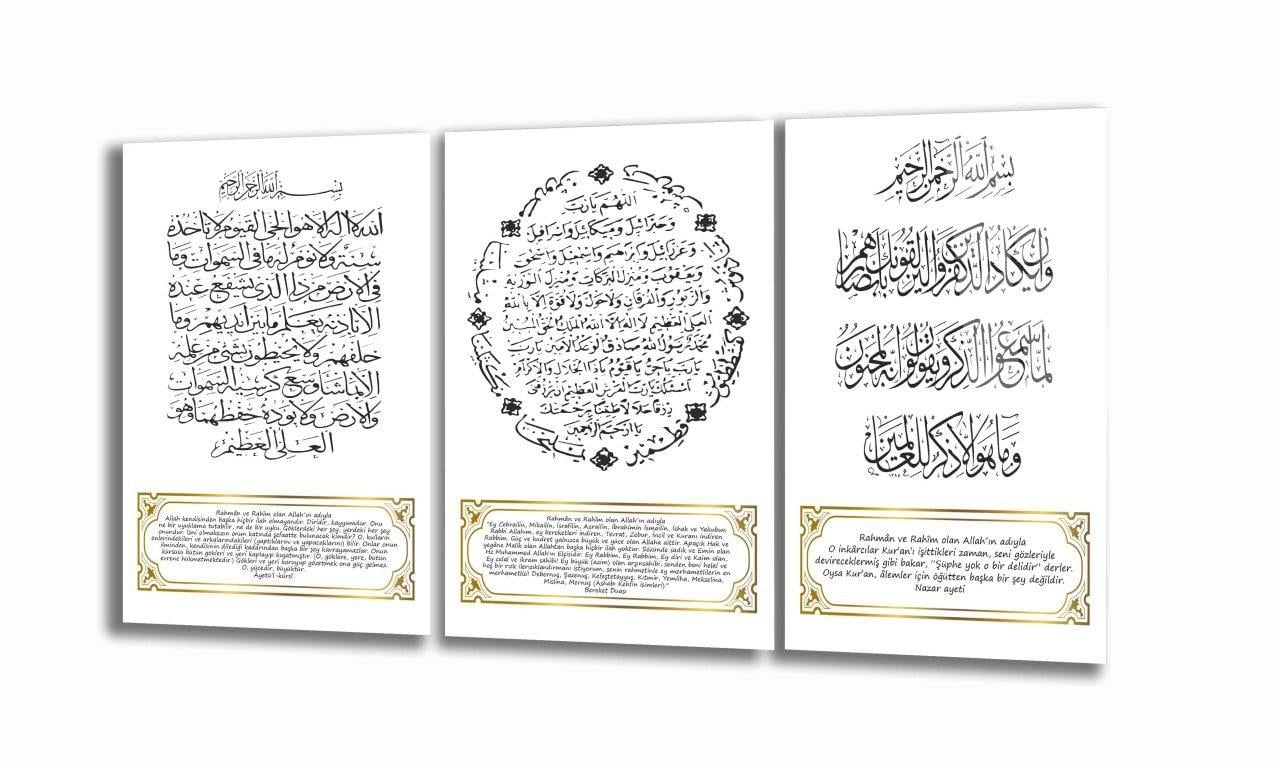 بسم الله الرحمن الرحيم
الله لا اله الا هو الحي القيوم لا تأخذه
سنة ولا نوم له ما في السموات وما
في الارض من ذا الذي يشفع عنده
الا باذنه يعلم ما بين ايديهم وما
خلفهم ولا يحيطون بشئ من علمه
الا بما شاء وسع كرسيه السموات
والارض ولا يؤده حفظهما وهو
العلي العظيم
Rahmân ve Rahîm olan Allah'ın adıyla
Allah kendisinden başka hiçbir ilah olmayandır. Diridir, kayyumdur. Onu
ne bir uyuklama tutabilir, ne de bir uyku. Göklerdeki her şey, yerdeki her şey
onundur. İzni olmaksızın onun katında şefaatte bulunacak kimdir? O, kulların
önlerindekileri ve arkalarındakileri (yaptıklarını ve yapacaklarını) bilir. Onlar onun
ilminden, kendisinin dilediği kadarından başka bir şey kavrayamazlar. Onun
kürsüsü bütün gökleri ve yeri kaplayıp kuşatmıştır. (O, göklere, yere, bütün
evrene hükmetmektedir.) Gökleri ve yeri koruyup gözetmek ona güç gelmez.
O, yücedir, büyüktür.
Ayetü'l-kürsî
اللهم يا رب
وجبرائيل وميكائيل واسرافيل
وعزرائيل وابراهيم واسمعيل واسحق
ويعقوب ومنزل البركات ومنزل التورية
والزبور والفرقان ولا حول ولا قوة الا بالله
العلي العظيم لا اله الا الله الملك الحق المبين
محمد رسول الله صادق الوعد الامين يا رب
يا رب يا حي يا قيوم يا ذا الجلال والاكرام
اسئلك يا رب العرش العظيم ان ترزقني
رزقا حلالا طيبا برحمتك
يا ارحم الراحمين
Rahmân ve Rahîm olan Allah'ın adıyla
"Ey Cebrailin, Mikailin, İsrafilin, Azrailin, İbrahimin İsmailin, İshak ve Yakubun
Rabbi Allahım, ey bereketleri indiren, Tevrat, Zebur, İncil ve Kuranı indiren
Rabbim, Güç ve kudret yalnızca büyük ve yüce olan Allaha aittir. Apaçık Hak ve
yegâne Malik olan Allahdan başka hiçbir ilah yoktur. Sözünde sadık ve Emin olan
Hz Muhammed Allah'ın Elçisidir. Ey Rabbim, Ey Rabbim, Ey diri ve Kaim olan,
Ey celal ve ikram sahibi! Ey büyük (azim) olan arşınsahibi, senden beni helal ve
hoş bir rızık ilerızıklandırmanı istiyorum, senin rahmetinle ey merhametlilerin en
merhametlisi! Debernuş, Şazenuş, Kefeştetayyuş, Kıtmir, Yemliha, Mekselina,
Mislina, Mernuş (Ashabı Kehfin isimleri)."
Bereket Duası
بسم الله الرحمن الرحيم
وان يكاد الذين كفروا ليزلقونك بابصارهم
لما سمعوا الذكر ويقولون انه لمجنون
وما هو الا ذكر للعالمين
Rahmân ve Rahîm olan Allah'ın adıyla
O inkârcılar Kur'an'ı işittikleri zaman, seni gözleriyle
devireceklermiş gibi bakar, "Şüphe yok o bir delidir" derler.
Oysa Kur'an, âlemler için öğütten başka bir şey değildir.
Nazar ayeti